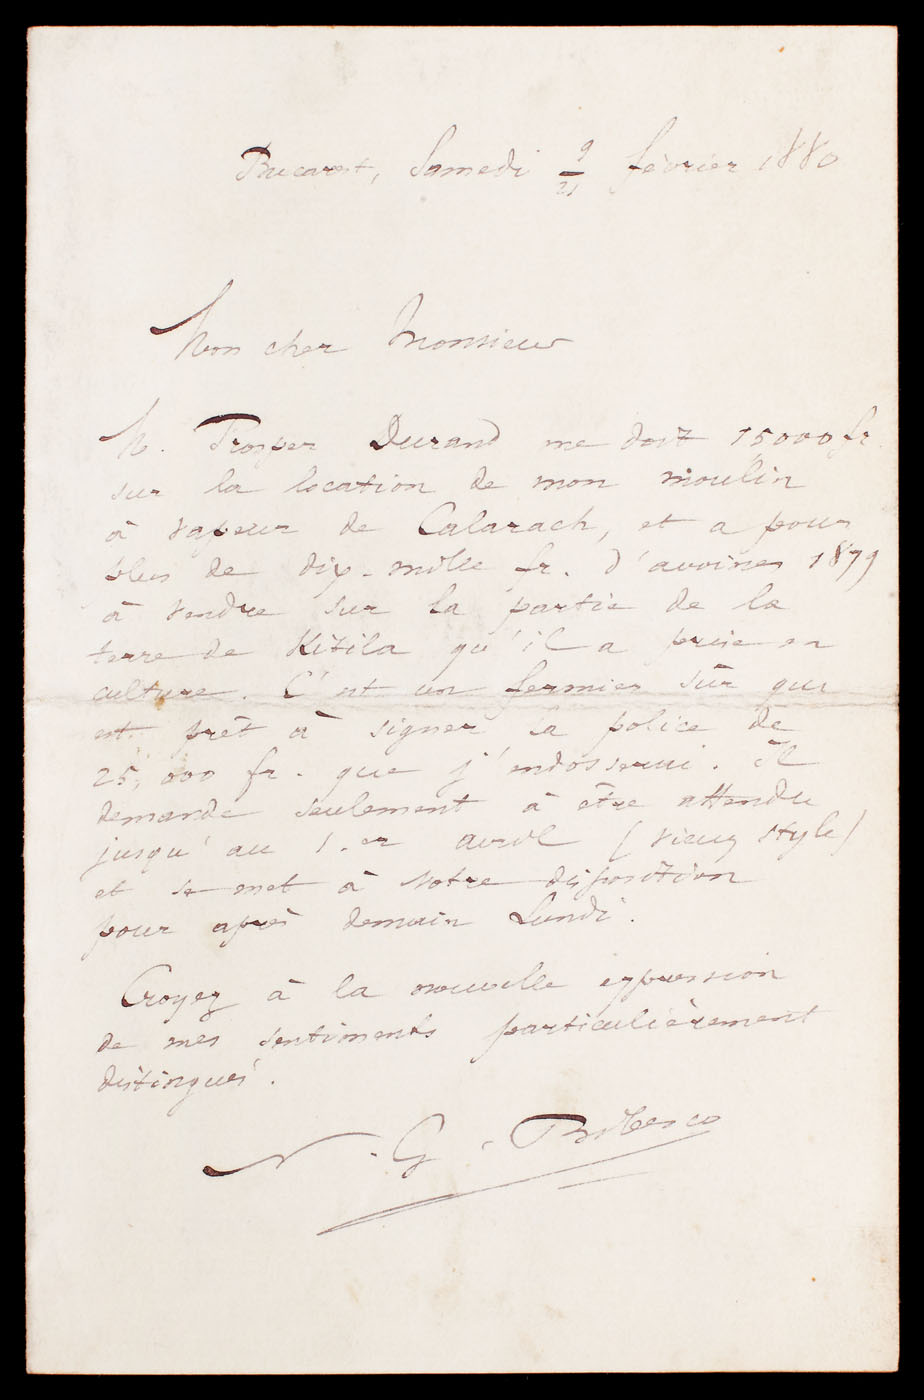 Bucarest, Samedi 9/21 février 1880
Mon cher Monsieur
M. Prosper Durand me doit 15000 fr.
sur la location de mon moulin
à vapeur de Calarach, et a pour
plus de dix-mille fr. d'avoines 1879
à vendre sur la partie de la
terre de Kitila qu'il a prise en
culture. C'est un fermier sûr qui
est prêt à signer la police de
25,000 fr. que j'endosserai. Il
demande seulement à être attendu
jusqu'au 1.er avril (vieux style)
et se met à votre disposition
pour après demain Lundi.
Croyez à la nouvelle expression
de mes sentiments particulièrement
distingués.
N. G. Bibesco